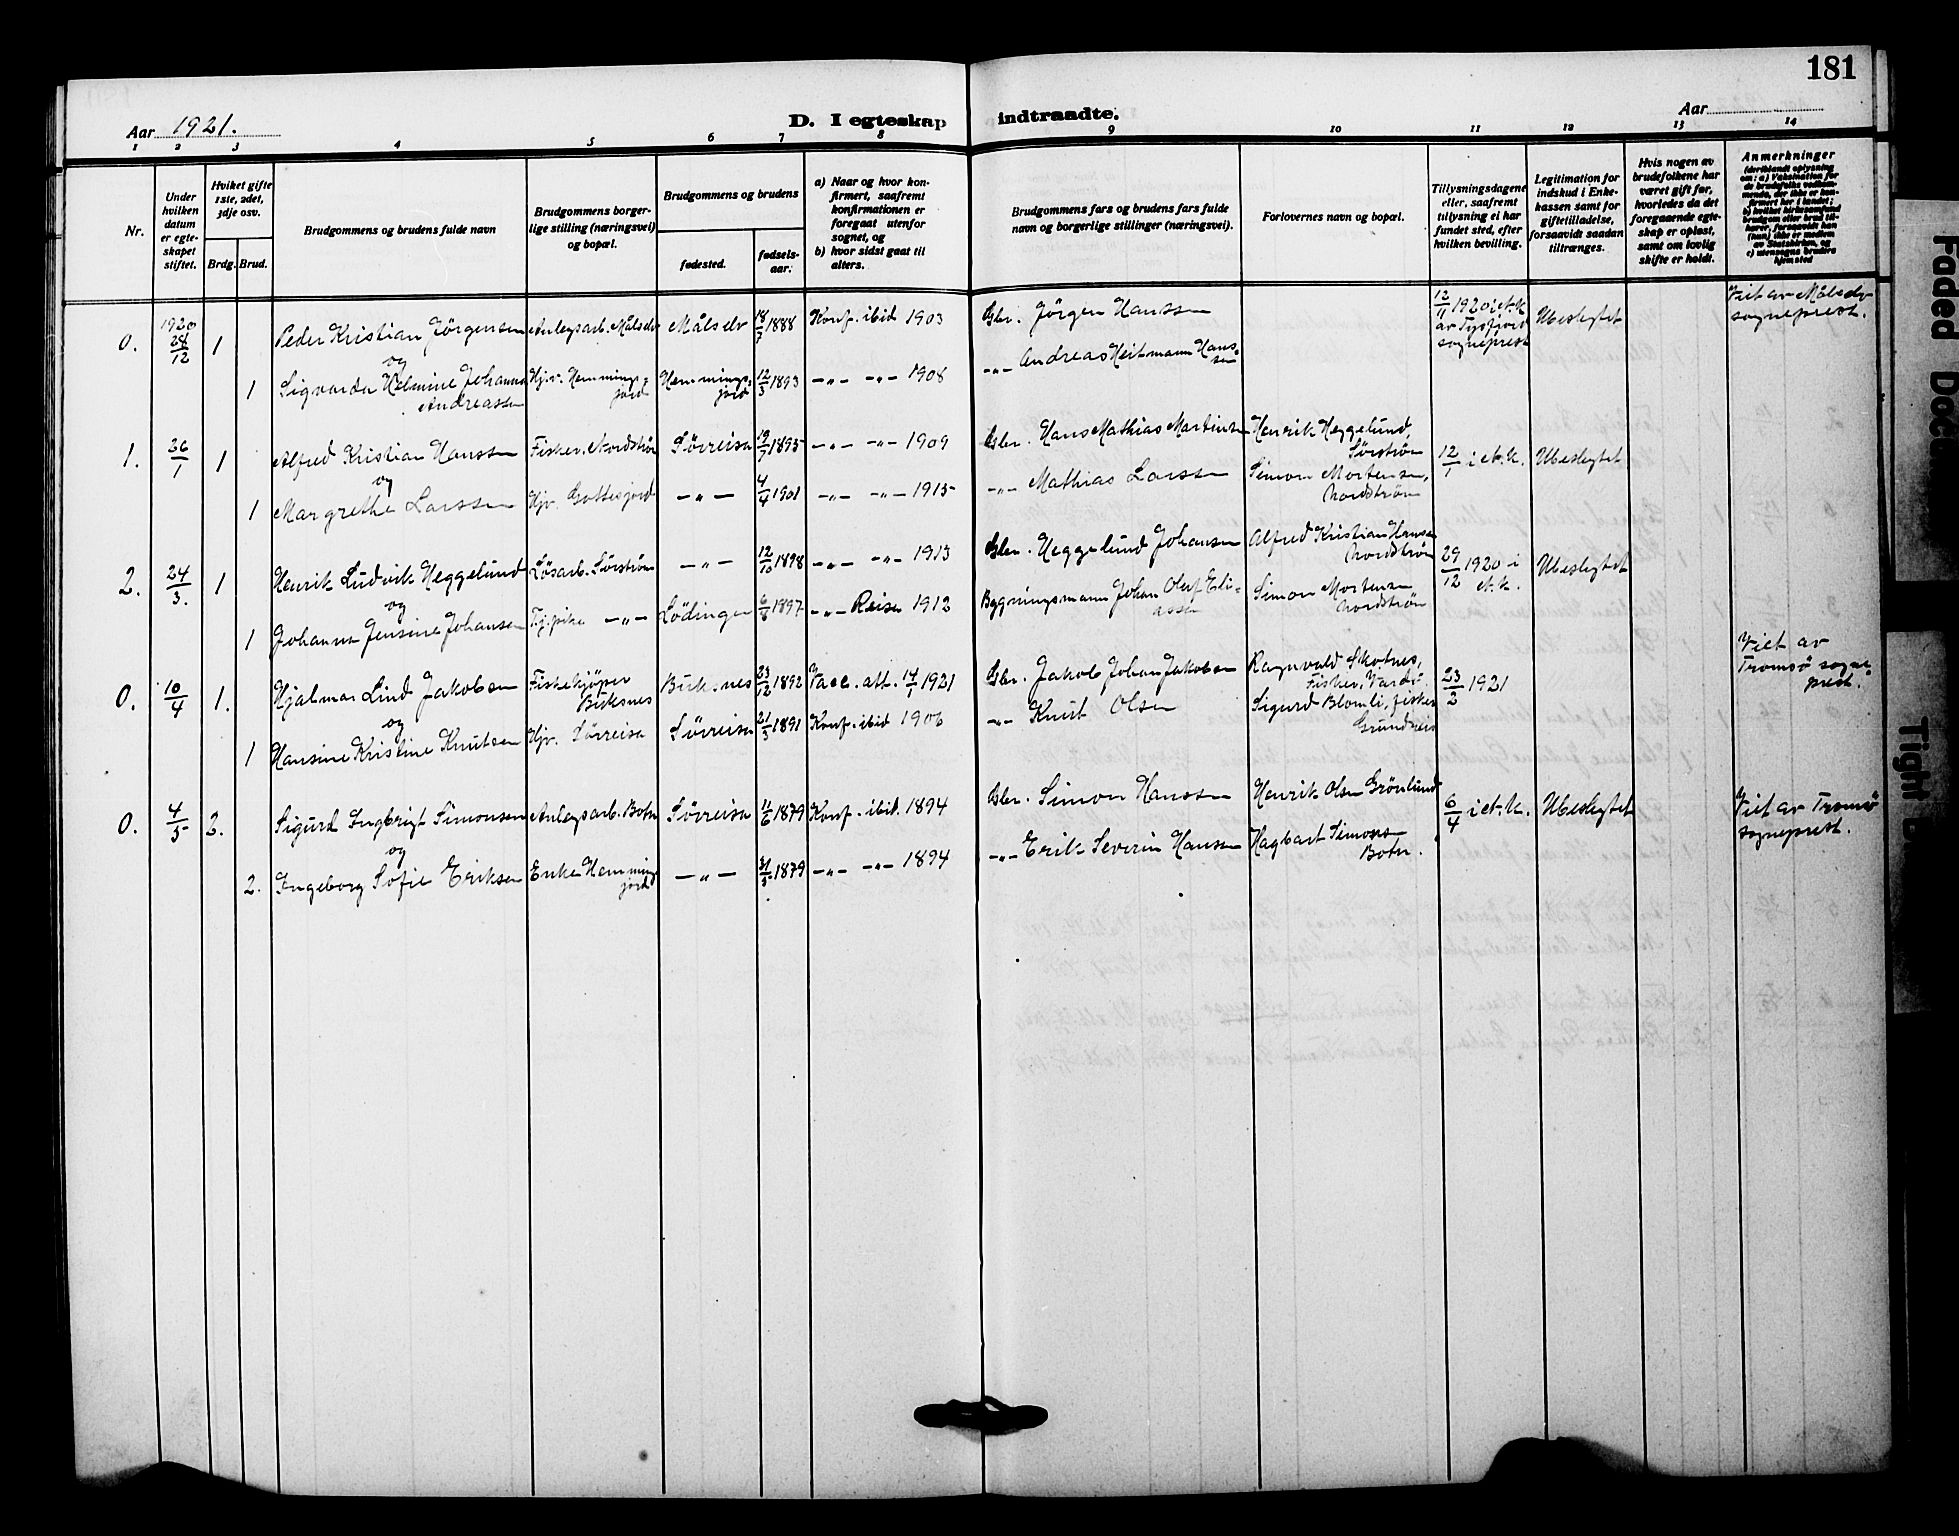 181
Aar 1921.
D. I egteskap indtraadte.
Aar
1 2 3 4 5 6 7 8 9 10 11 12 13 14
Nr.
Under hvilken datum er egteskapet stiftet.
Hviket gifte 1ste, 2det, 3dje osv.
Brdg. Brud.
Brudgommens og brudens fulde navn
Brudgommens borgerlige stilling (næringsvei) og bopæl.
Brudgommens og brudens
fødested.
fødselsaar.
a) Naar og hvor konfirmert, saafremt konfirmationen er foregaat utenfor sognet, og
b) hvor sidst gaat til alters.
Brudgommens fars og brudens fars fulde navn og borgerlige stillinger (næringsvei).
Forlovernes navn og bopæl.
Tillysningsdagene eller, saafremt tillysning ei har fundet sted, efter hvilken bevilling.
Legitimation for indskud i Enkekassen samt for giftetilladelse, forsaavidt saadan tiltrænges.
Hvis nogen av brudefolkene har været gift før, hvorledes da det foregaaende egteskap er opløst, samt om lovlig skifte er holdt.
Anmerkninger
0. 1920 28/12 1 Peder Kristian Jörgensen Anlegsarb. Målselv Målselv 18/7 1888 Konf. ibid 1903 Gbr. Jörgen Hanssen 12/11 1920 i et. k. av Tysfjord sogneprest Ubeslegtet Viet av Målselv sogneprest.
og
1 Sigvarda Helmine Johanna Andreassen Hj.v. Hemmingsjord Hemmingsjord 12/3 1893 -"- -"- 1908 -"- Andreas Heitmann Hanssen
1. 26/1 1 Alfred Kristian Hanssen Fisker. Nordströn Sörreisa 19/7 1895 -"- -"- 1909 Gbr. Hans Mathias Martinsen Henrik Heggelund, Sörströn 12/1 i et. k. Ubeslegtet
og
1 Margrethe Larssen Hjv. Gottesjord -"- 4/4 1901 -"- -"- 1915 -"- Mathias Larssen Simon Mortensen, Nordströn
2. 24/3. 1 Henrik Ludvik Heggelund Lösarb. Sörströn -"- 12/10 1898 -"- -"- 1913 Gbr. Heggelund Johansen Alfred Kristian Hansen Nordströn 29/12 1920 i et. k. Ubeslegtet
og
1 Johanna Jensine Johansen Tj.pike -"- Lödingen 1897 -"- Reisa 1912 Bygningsmann Johan Oluf Eliassen Simon Mortensen Nordströn
0. 10/4 1. Hjalmar Lind Jakobsen Fiskekjöper Buksnes Buksnes 23/12 1892 Vacc. att. 14/1 1921 Gbr. Jakob Johan Jakobsen Ragnvald Skotnes, Fisker, Vardö. 23/2 1921 Viet av Tromsö sogneprest.
og
1 Hansine Kristine Knutsen Hjv. Sörreisa Sörreisa 21/3 1891 Konf. ibid 1906 -"- Knut Olsen Sigurd Blomli, fisker Grundreis
0. 4/5 2. Sigurd Ingbrigt Simonsen Anlegsarb. Botn Sörreisa 11/6 1879 Konf. ibid. 1894 Gbr. Simon Hanssen Henrik Olsen Grönlund 6/4 i et. k. Ubeslegtet Viet av Tromsö sogneprest.
og
2. Ingeborg Sofie Eriksen Enke Hemmingsjord -"- 31/5 1879 -"- -"- 1894 -"- Erik Severin Hanssen Hagbart Simons Botn.
Faded Doc
Tight